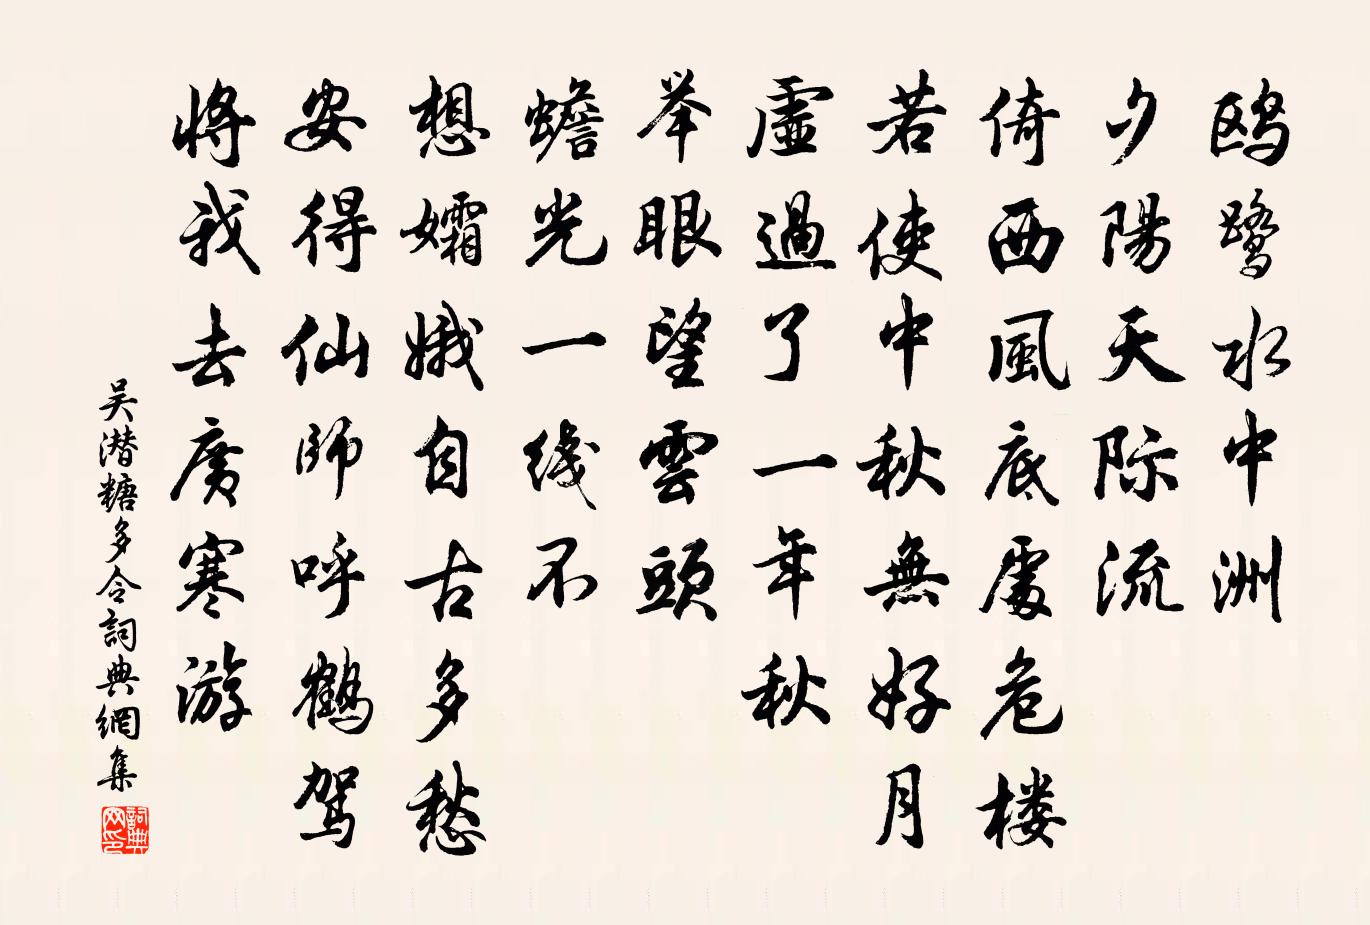 鸥鹭水中洲
夕陽天际流
倚西風底處危楼
若使中秋無好月
虛過了一年秋
举眼望雲頭
蟾光一线不
想孀娥自古多愁
安得仙師呼鹤驾
将我去廣寒游
吴潜糖多令詞典網集
詞典
网印